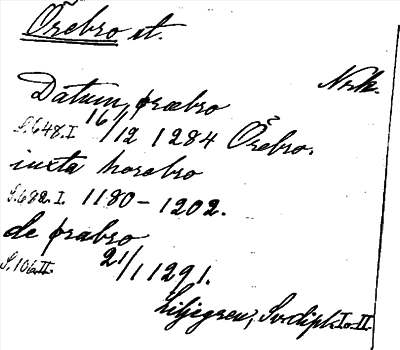 Örebro st.
Nrk.
Datum præbro
S.648.I. 16/12 1284 Örebro.
iuxta horebro
S.682.I. 1180-1202.
de ørabro
S.106.II. 21/1 1291.
Liljegren, Sv. dipl. I o. II.